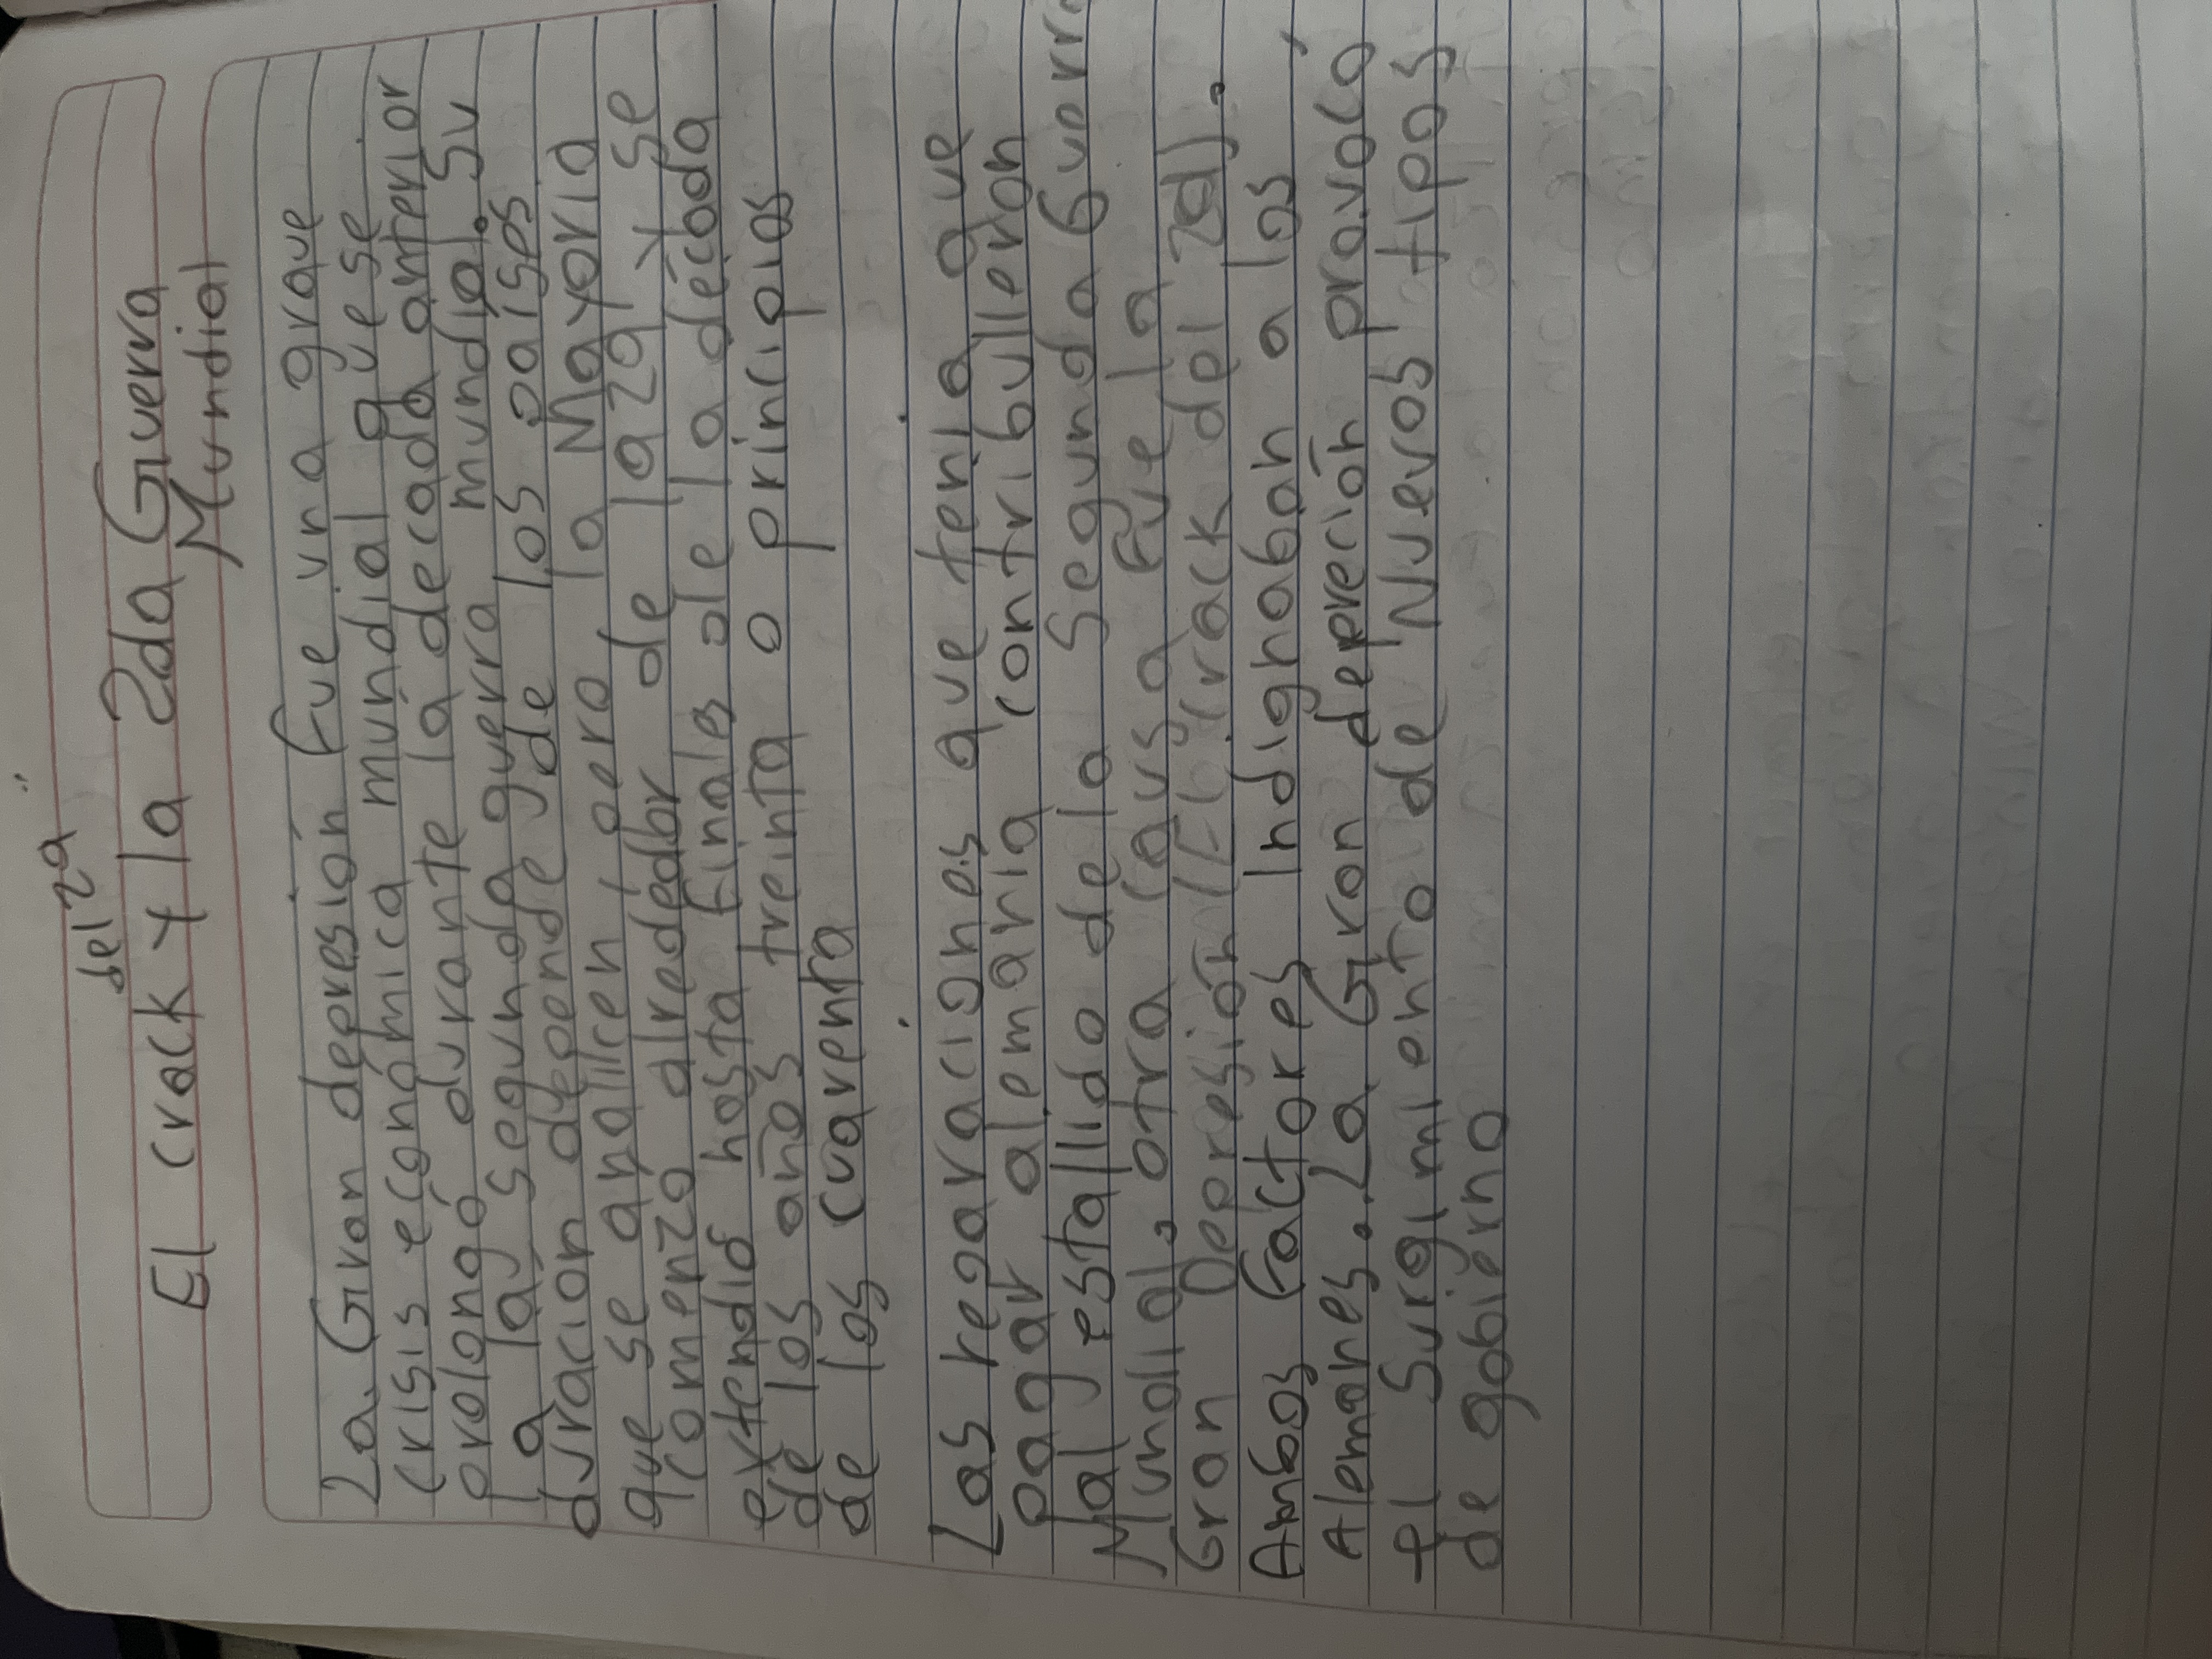 del 29
El crack y la 2da Guerra
Mundial
La Gran depresión fue una grave
crisis económica mundial que se
prolongó durante la decada anterior
a la segunda guerra mundial. Su
duracion depende de los países
que se analicen, pero la Mayoria
comenzó alrededor de la 29 y se
extendió hasta finales de la década
de los años treinta o principios
de los cuarenta
Las reparaciones que tenia que
pagar alemania contribulleron
al estallido de la Segunda Guerra
Mundial. otra causa fue la
Gran Depresión (El Crack del 29).
Ambos factores Indignaban a los
Alemanes. La Gran depreción provocó
el Surgimiento de Nuevos tipos
de gobierno